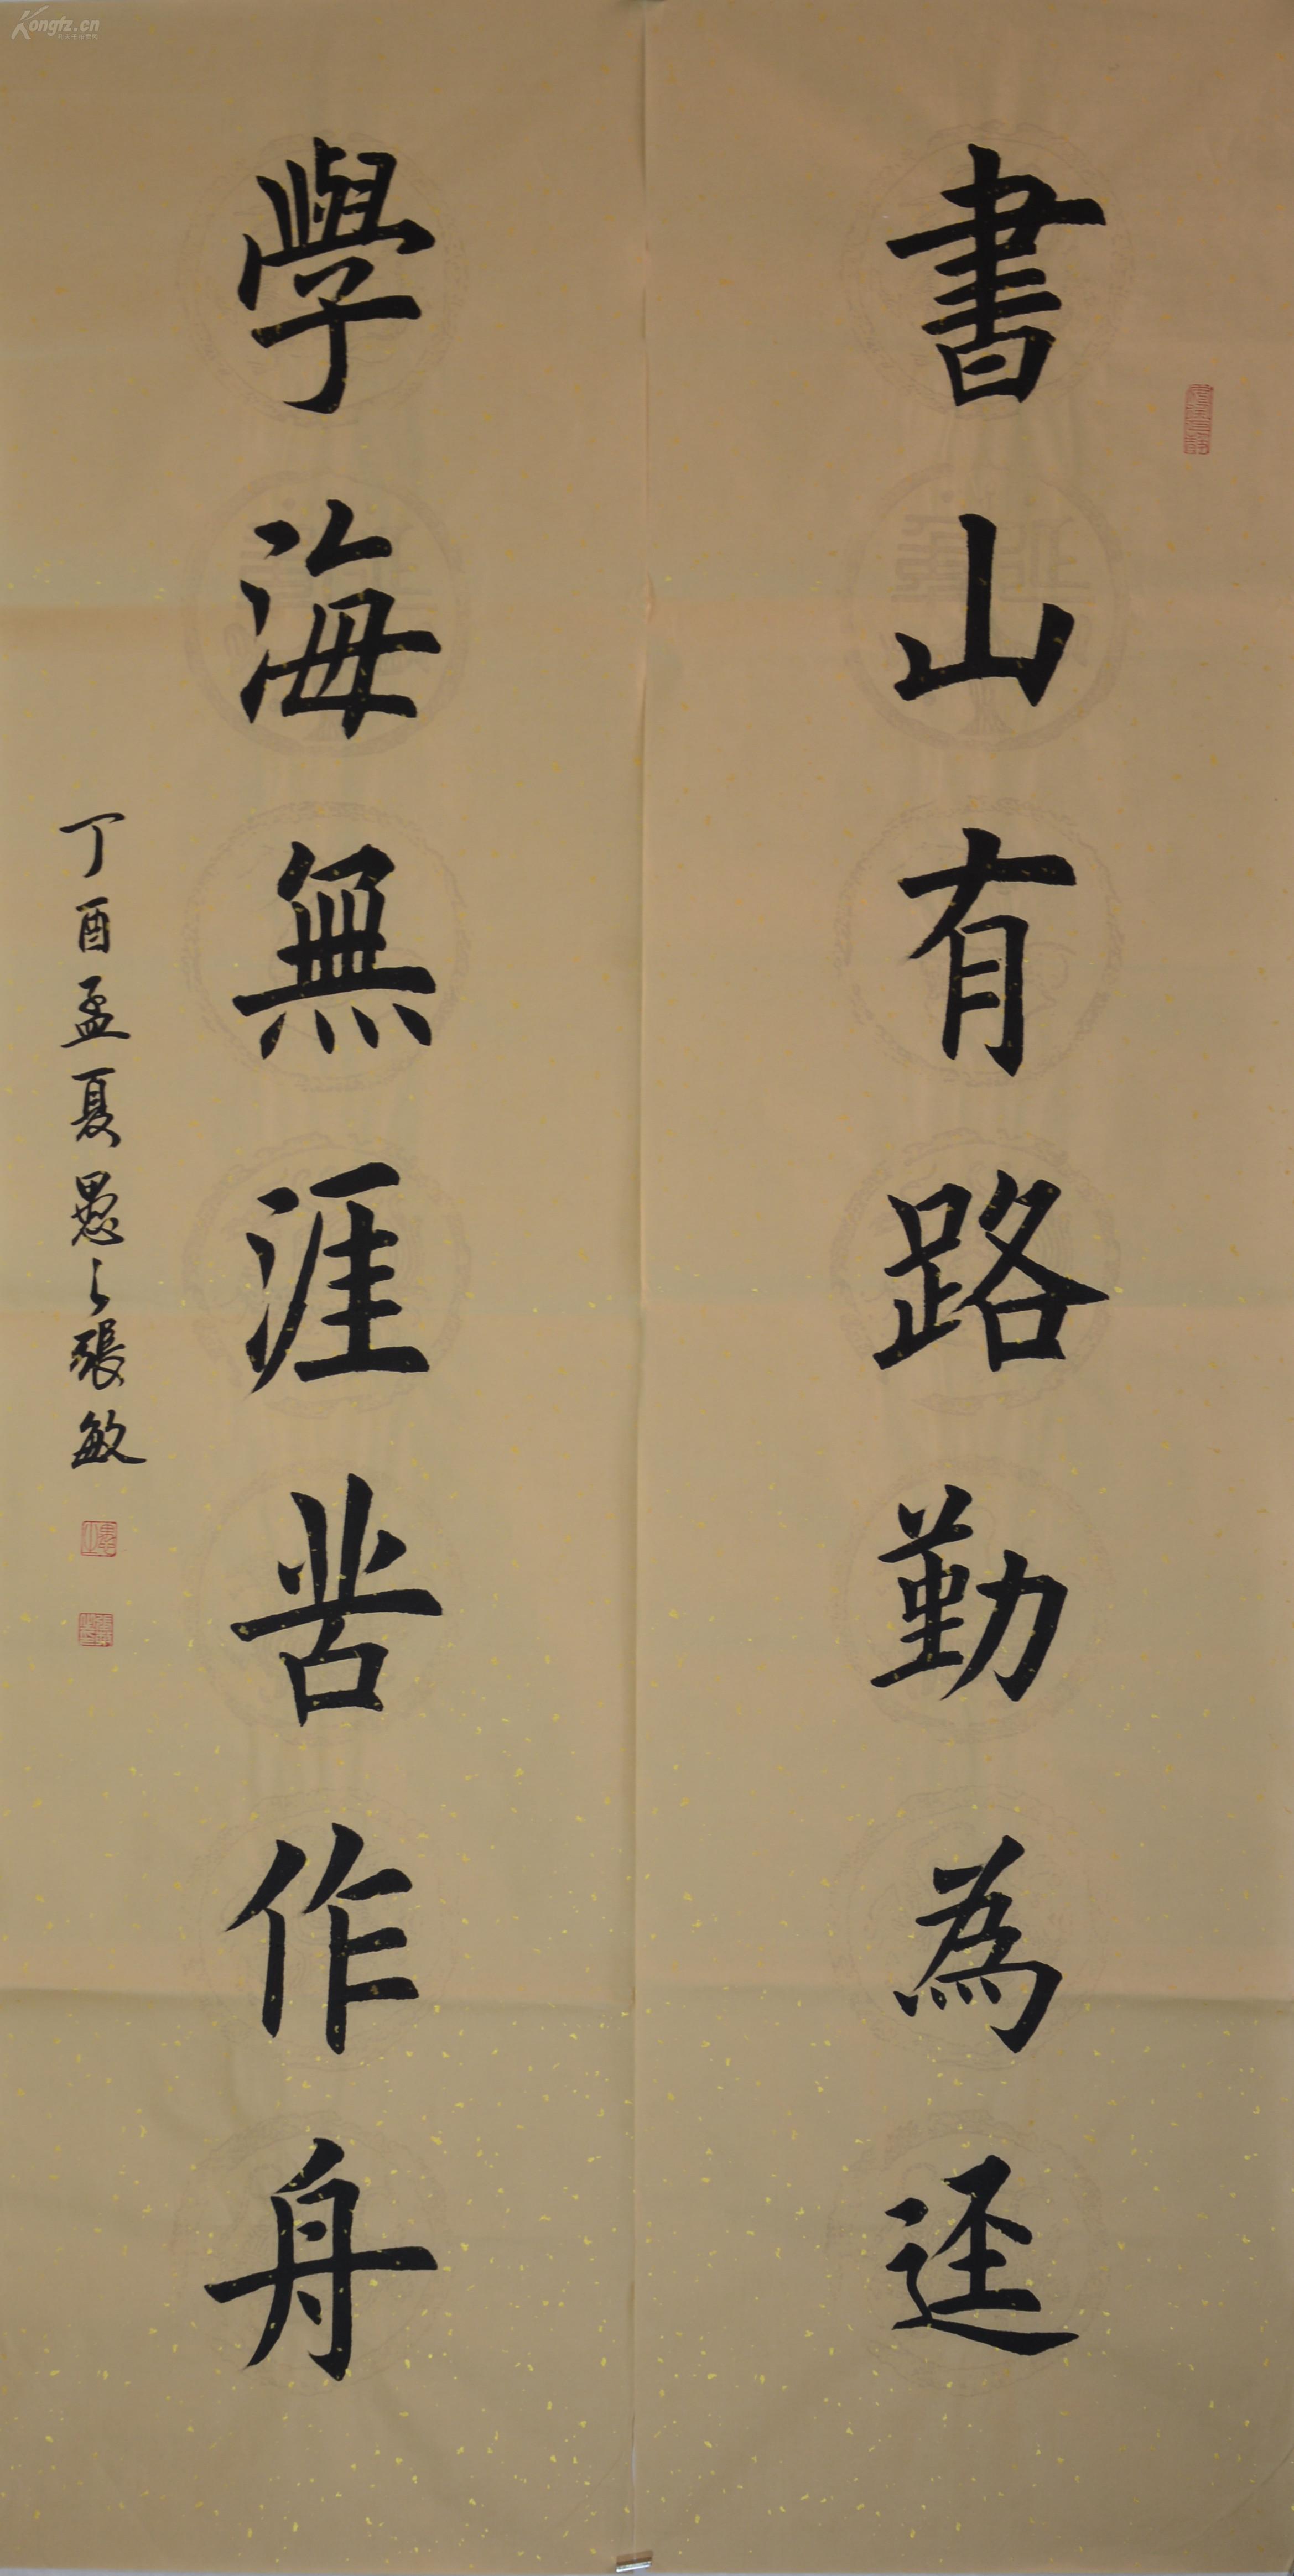 書山有路勤為迳
學海無涯苦作舟
丁酉孟夏愚之張敏
Kongfz.cn